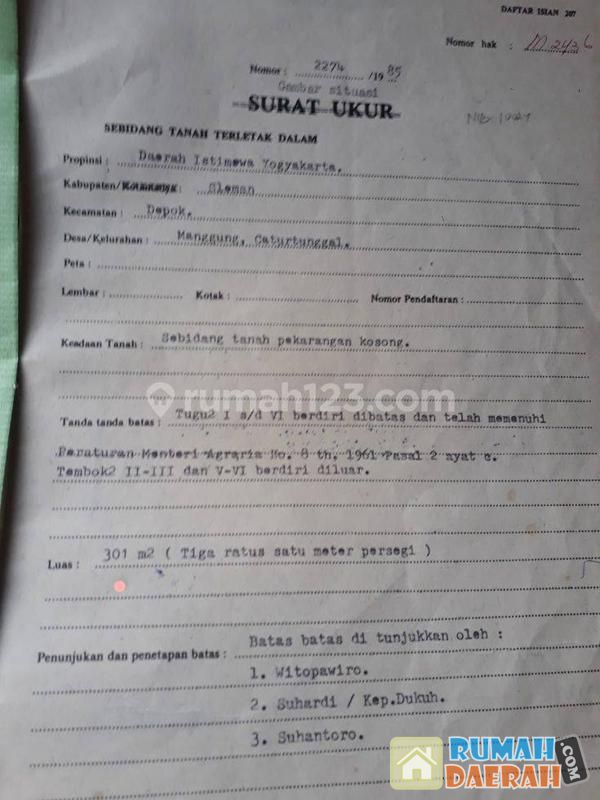 DAFTAR ISIAN 207
Nomor hak : M 2436
Nomor : 2274 /19 85
Gambar situasi
SURAT UKUR
NIB 1007
SEBIDANG TANAH TERLETAK DALAM
Propinsi : Daerah Istimewa Yogyakarta.
Kabupaten/Kotamadya : Sleman
Kecamatan : Depok.
Desa/Kelurahan : Manggung, Caturtunggal.
Peta :
Lembar : Kotak : Nomor Pendaftaran :
Keadaan Tanah : Sebidang tanah pekarangan kosong.
rumah123.com
Tanda tanda batas : Tugu2 I s/d VI berdiri dibatas dan telah memenuhi
Peraturan Menteri Agraria No. 8 th. 1961 Pasal 2 ayat c.
Tembok2 II-III dan V-VI berdiri diluar.
Luas : 301 m2 ( Tiga ratus satu meter persegi )
Penunjukan dan penetapan batas : Batas batas di tunjukkan oleh :
1. Witopawiro.
2. Suhardi / Kep.Dukuh.
3. Suhantoro.
RUMAH
DAERAH.COM